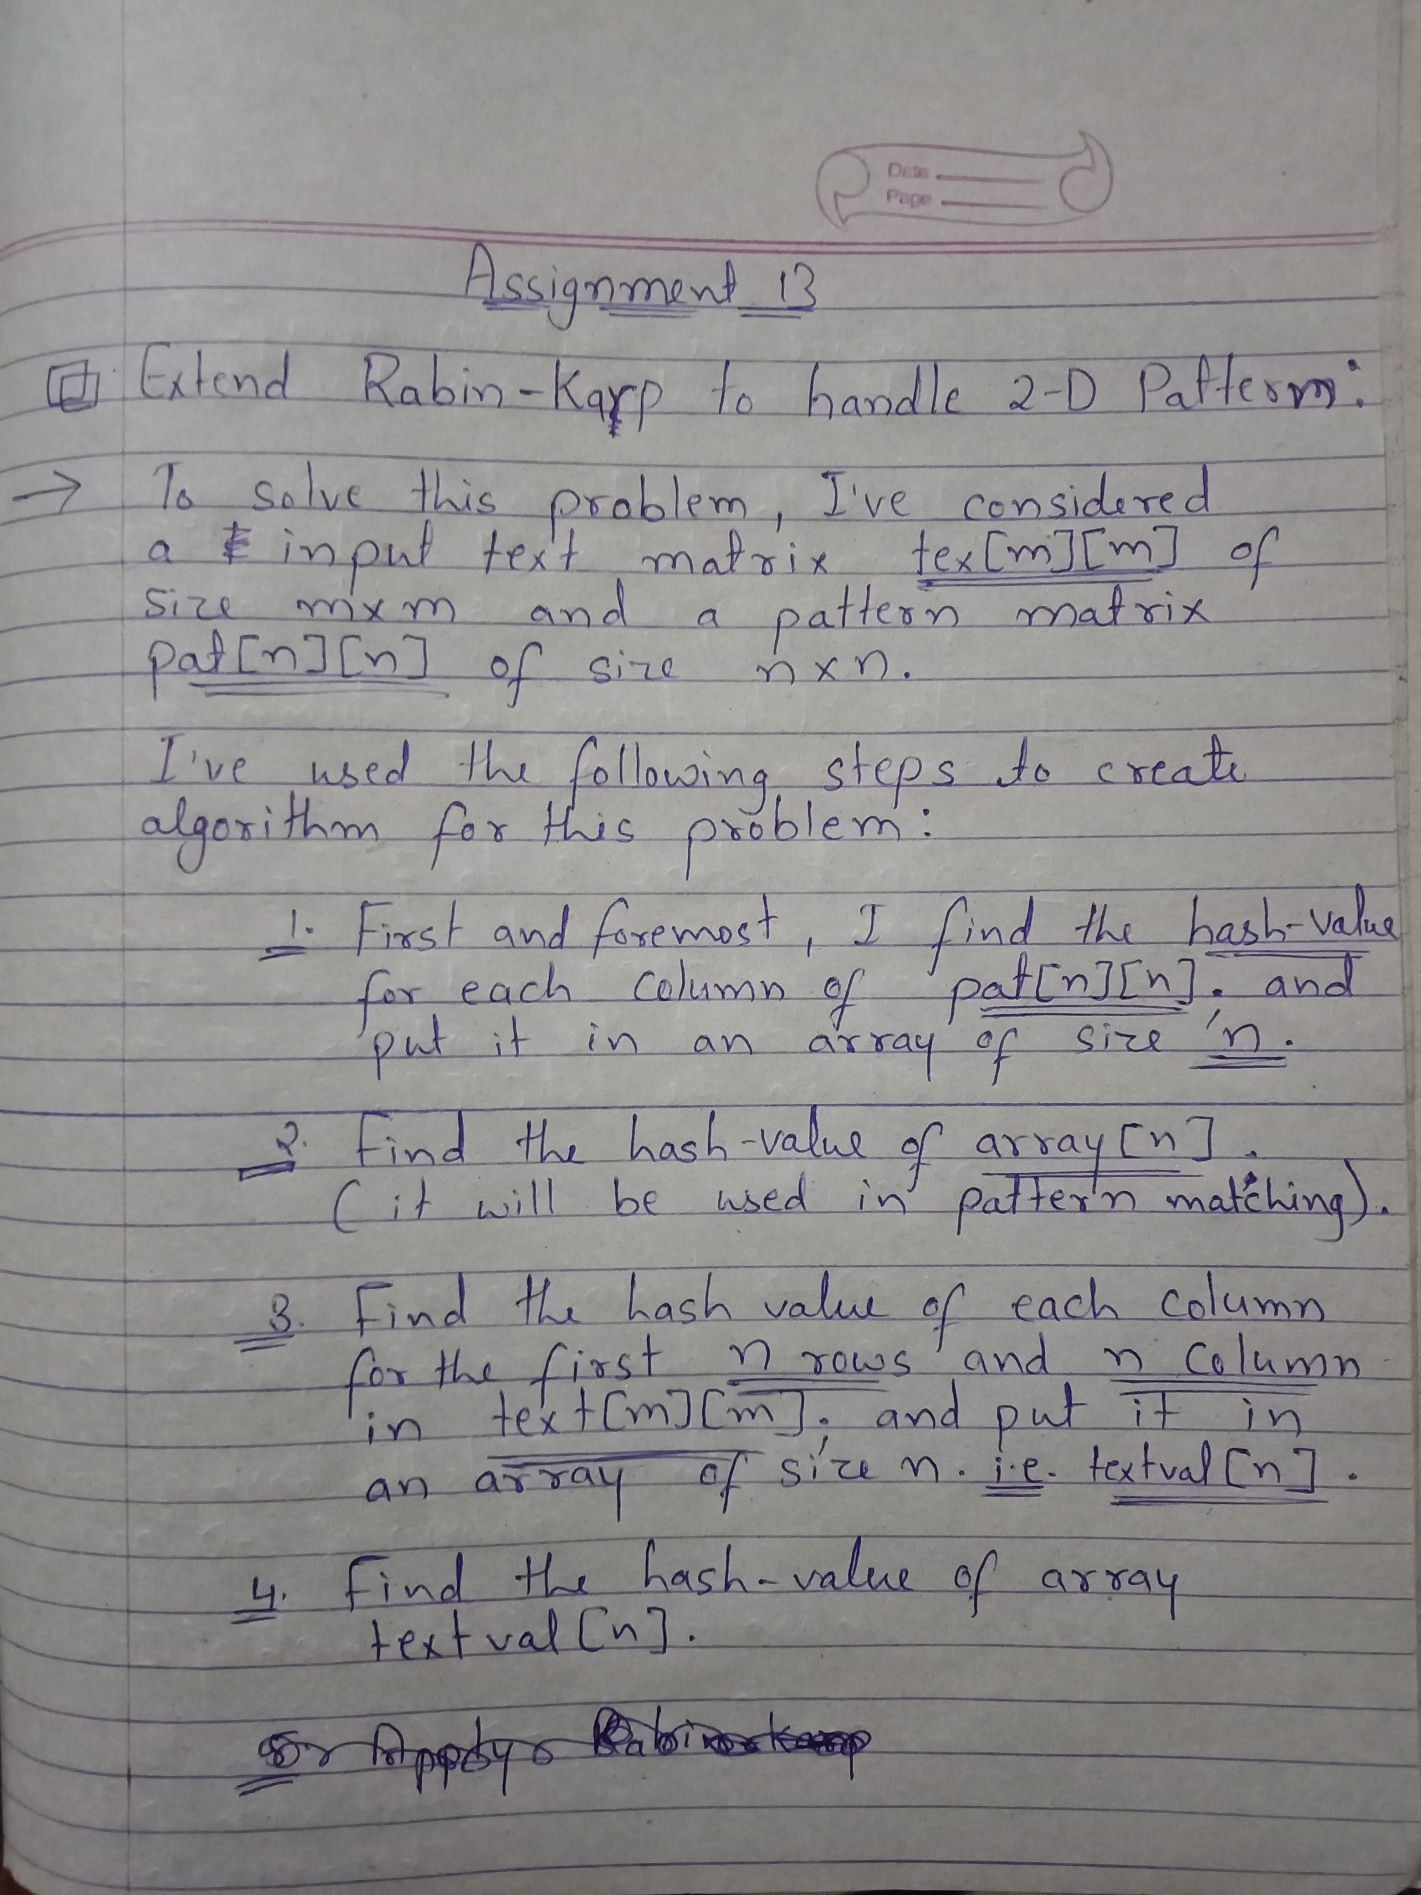 Date
Page
Assignment 13
Extend Rabin-Karp to handle 2-D Pattern:
→ To solve this problem, I've considered
a input text matrix tex[m][m] of
size mxm and a pattern matrix
pat[n][n] of size nxn.
I've used the following steps to create
algorithm for this problem:
1. First and foremost, I find the hash-value
for each column of pat[n][n]. and
put it in an array of size 'n.
2. Find the hash-value of array[n].
(it will be used in pattern matching).
3. Find the hash value of each column
for the first n rows and n column
in text[m][m]. and put it in
an array of size n. i.e. textval[n].
4. Find the hash-value of array
textval[n].
5. Apply Rabin karp